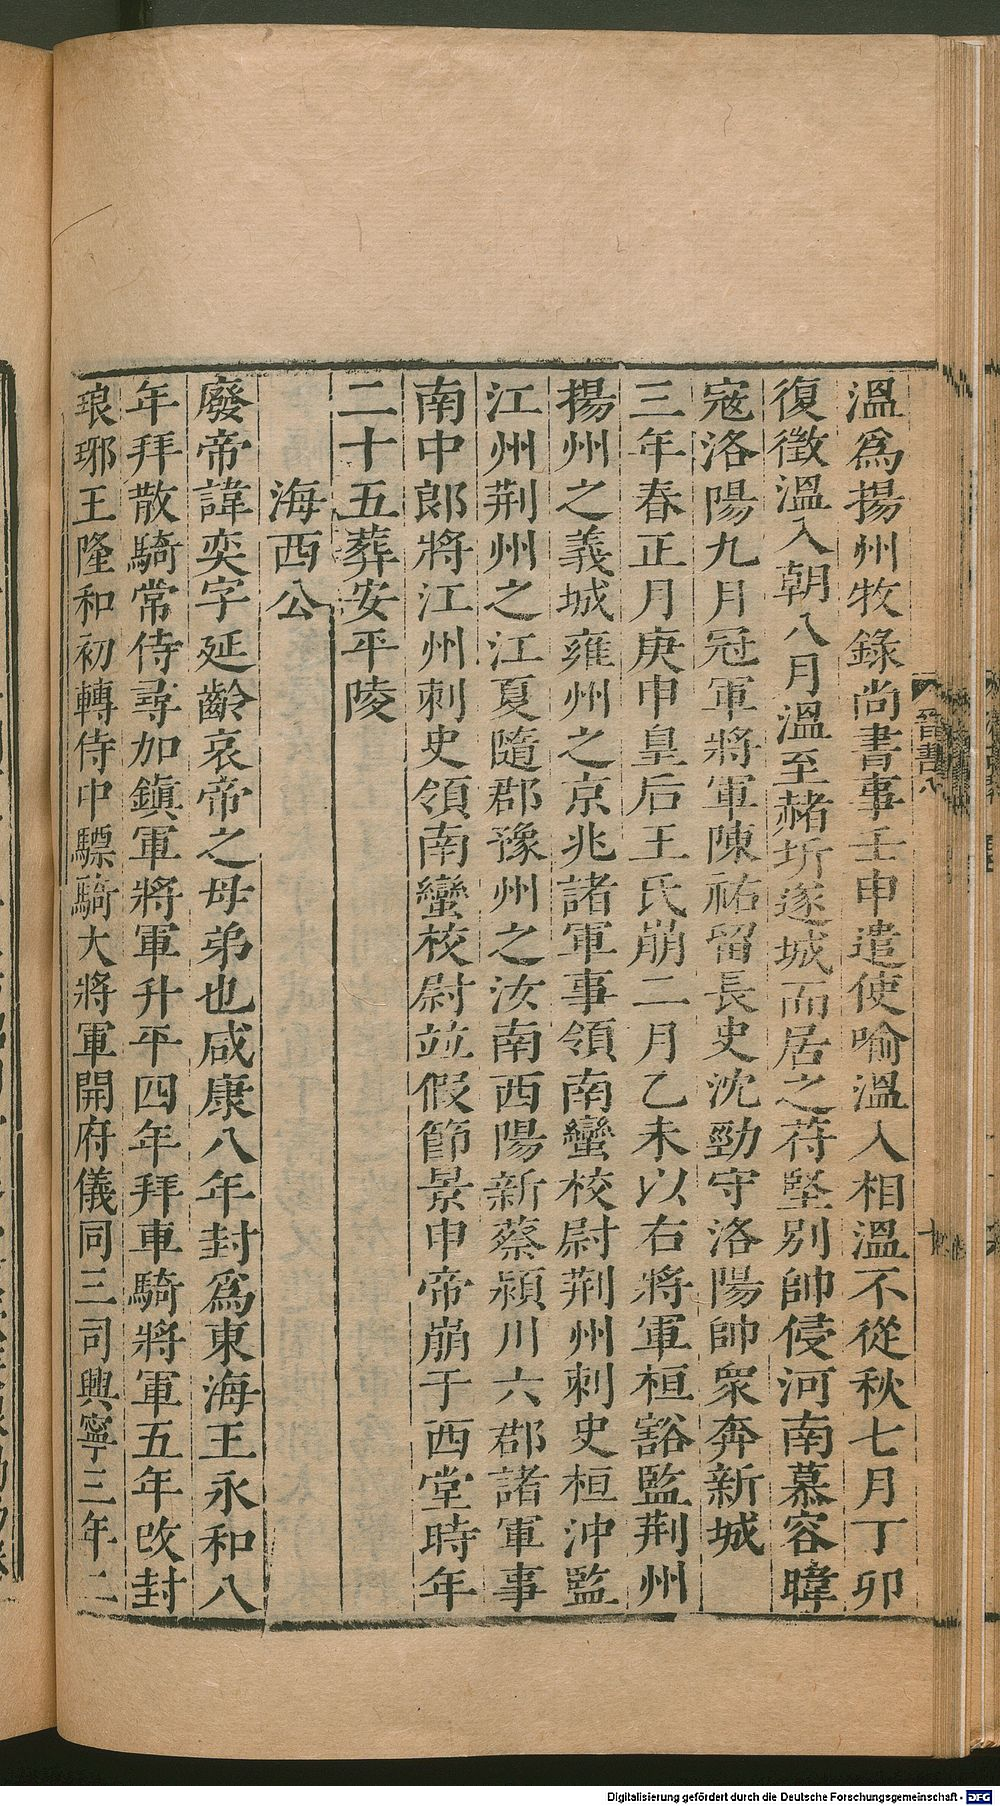 溫爲揚州牧錄尚書事壬申遣使喻溫入相溫不從秋七月丁卯
復徵溫入朝八月溫至赭圻遂城而居之苻堅别帥侵河南慕容暐
寇洛陽九月冠軍將軍陳祐留長史沈勁守洛陽帥衆奔新城
三年春正月庚申皇后王氏崩二月乙未以右將軍桓豁監荆州
揚州之義城雍州之京兆諸軍事領南蠻校尉荆州刺史桓沖監
江州荆州之江夏隨郡豫州之汝南西陽新蔡潁川六郡諸軍事
南中郎將江州刺史領南蠻校尉竝假節景申帝崩于西堂時年
二十五葬安平陵
海西公
廢帝諱奕字延齡哀帝之母弟也咸康八年封爲東海王永和八
年拜散騎常侍尋加鎭軍將軍升平四年拜車騎將軍五年改封
琅琊王隆和初轉侍中驃騎大將軍開府儀同三司興寧三年二
晉書八
十
Digitalisierung gefördert durch die Deutsche Forschungsgemeinschaft - DFG